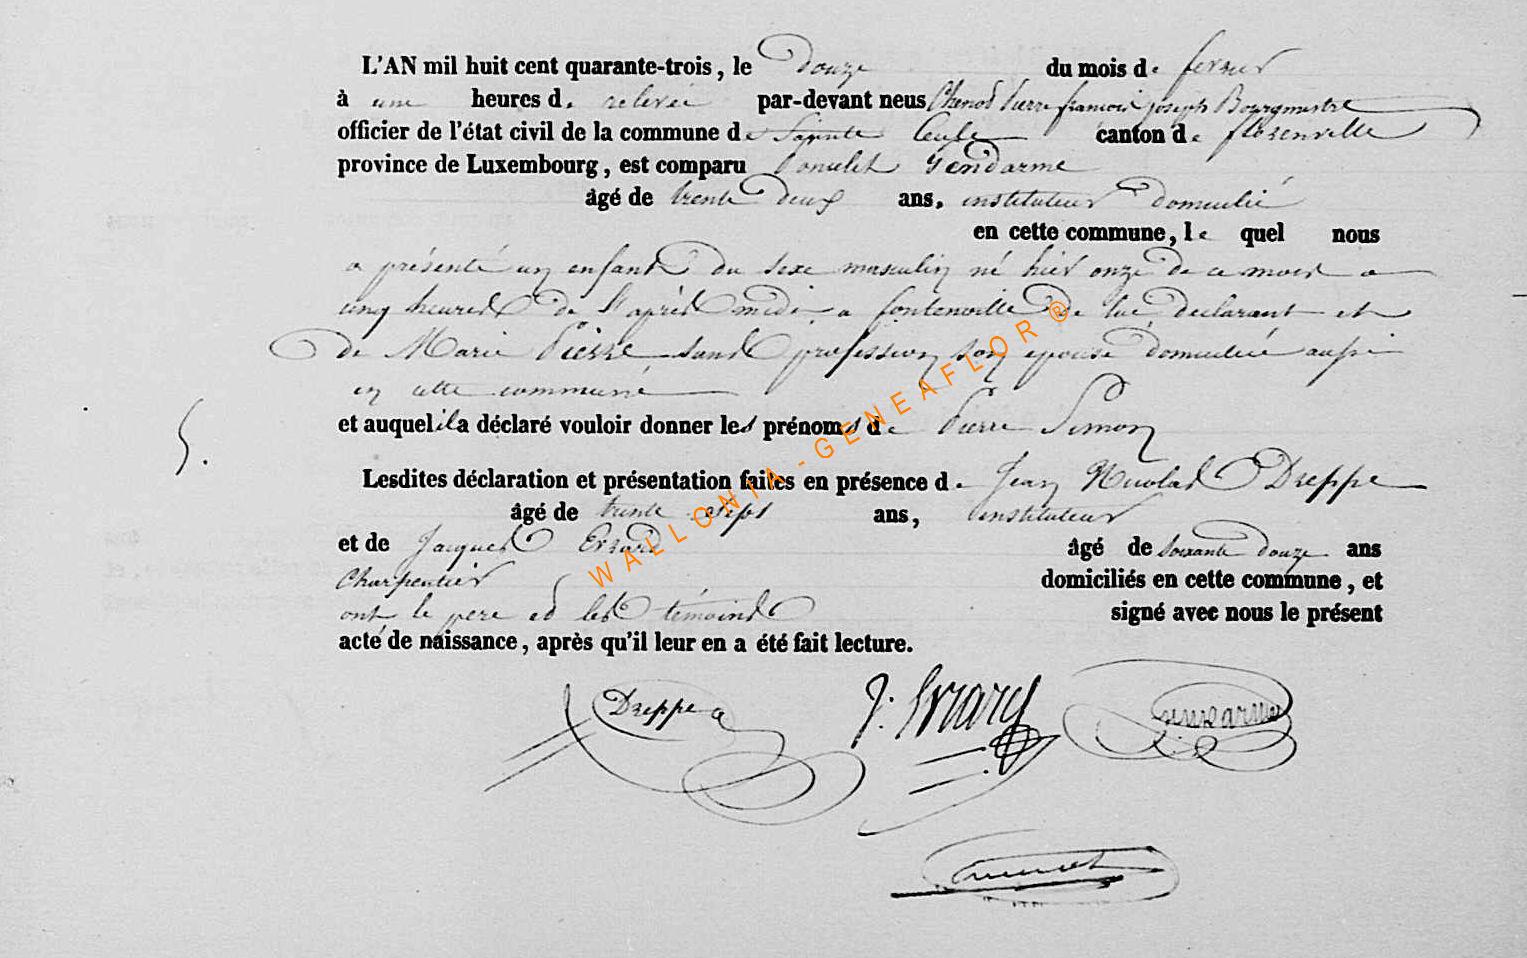 L'AN mil huit cent quarante-trois, le douze du mois de fevrier
à une heures de relevée par-devant nous Chenot Pierre françois joseph Bourgmestre
officier de l'état civil de la commune de Sainte Cecile canton de florenville
province de Luxembourg, est comparu Poncelet Gendarme
âgé de trente deux ans, instituteur domicilié
en cette commune, le quel nous
a présenté un enfant du sexe masculin né hier onze de ce mois a
cinq heures de l'après midi, a fontenoille de lui declarant et
de Marie Pierre sans profession son epouse domiciliée aussi
en cette commune
et auquel il a déclaré vouloir donner les prénoms de Pierre Simon
5.
Lesdites déclaration et présentation faites en présence de Jean Nicolas Dreppe
âgé de trente sept ans, instituteur
et de Jacques Evrard âgé de soixante douze ans
Charpentier domiciliés en cette commune, et
ont le pere et les témoins signé avec nous le présent
acte de naissance, après qu'il leur en a été fait lecture.
Dreppe J. Evrard Gendarme
WALLONIA-GENEAFLOR®